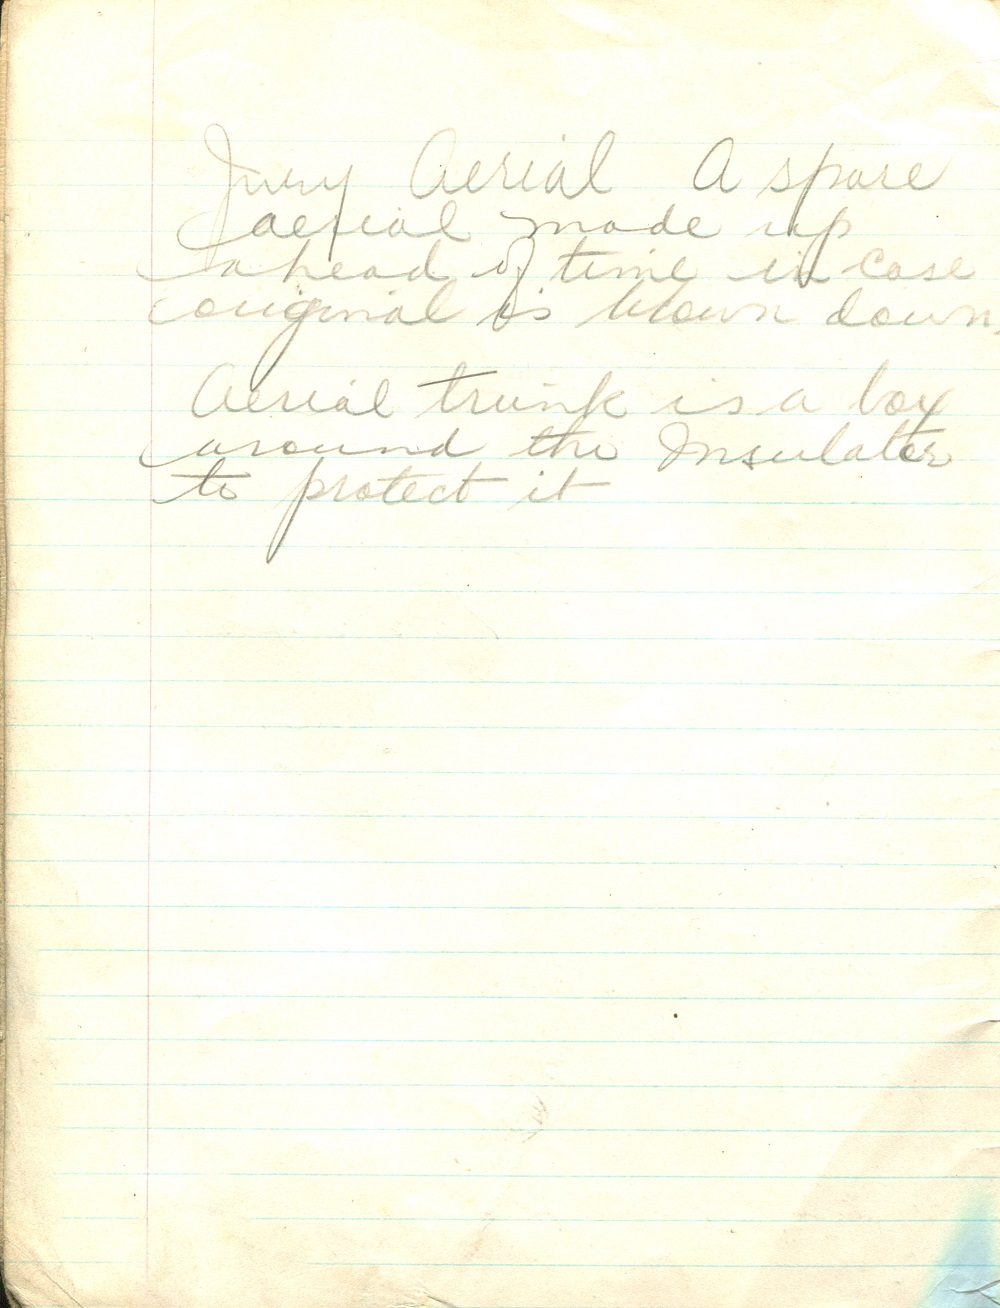 Jury Aerial A spare
aerial made up
ahead of time in case
original is blown down.
Aerial trunk is a box
around the Insulator
to protect it